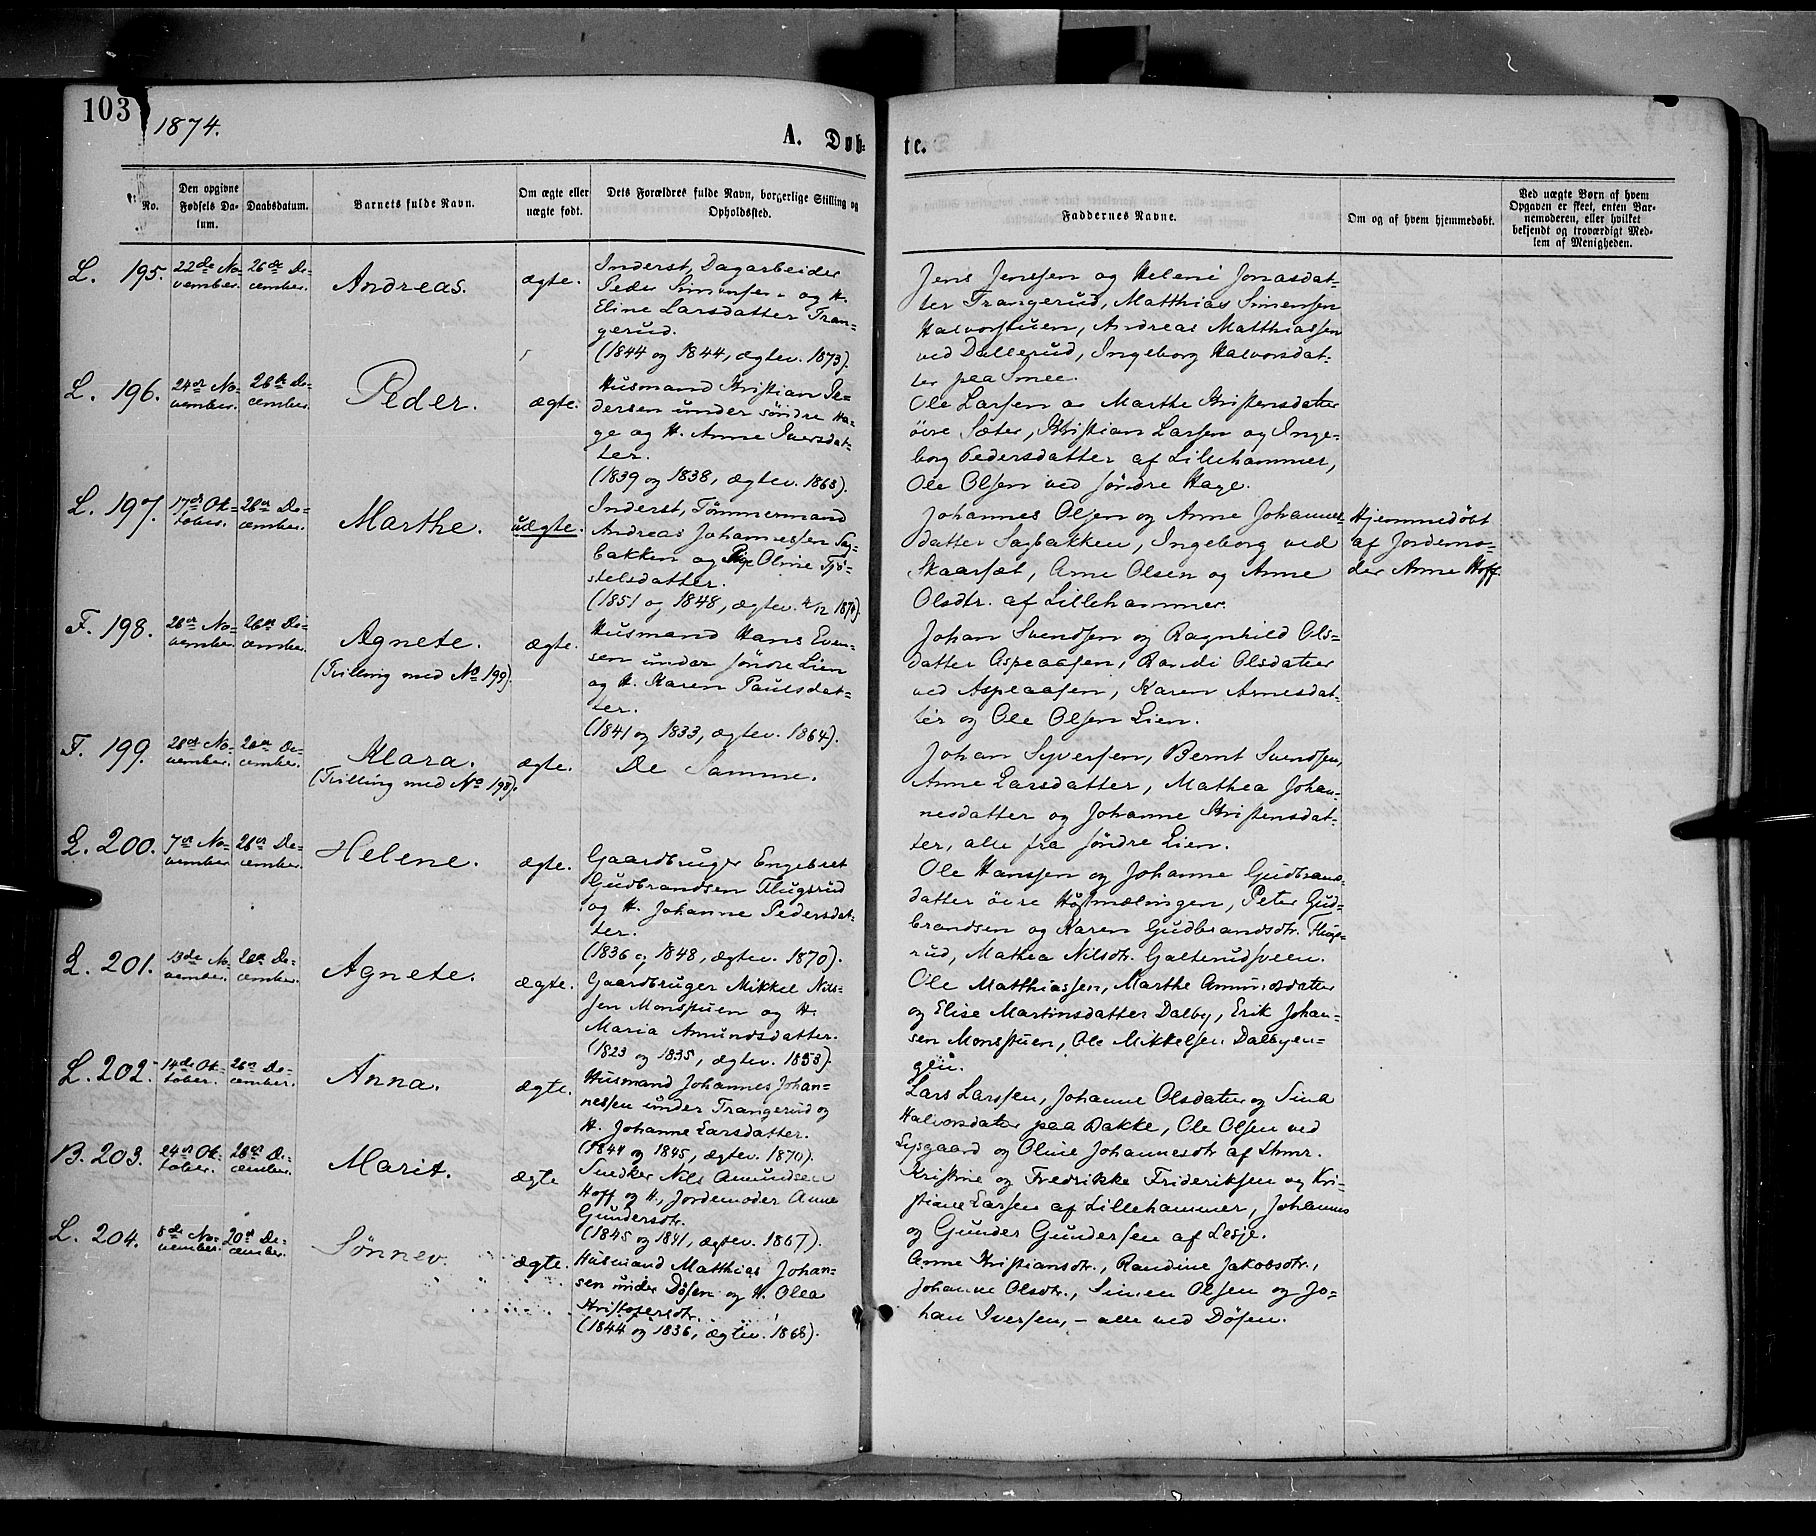 103
1874.
A. Døb-
te.
No.
Den opgivne
Fødsels Da-
tum.
Daabsdatum.
Barnets fulde Navn.
Om ægte eller
uægte født.
Dets Forældres fulde Navn, borgerlige Stilling og
Opholdssted.
Faddernes Navne.
Om og af hvem hjemmedøbt.
Ved uægte Børn af hvem
Opgaven er skeet, enten Bar-
nemoderen, eller hvilket
bekjendt og troværdigt Med-
lem af Menigheden.
L. 195.
22de No-
vember.
26de De-
cember.
Andreas.
ægte.
Inderst, Dagarbeider
Peder Simensen og H.
Eline Larsdatter Tran-
gerud.
(1844 og 1844, ægtev. 1873).
Jens Jenssen og Heleni Jonasdat-
ter Trangerud, Matthias Simensen
Halvorstuen, Andreas Matthiassen
ved Dallerud, Ingeborg Halvorsdat-
ter paa Smee.
L. 196.
24de No-
vember.
26de De-
cember.
Peder.
ægte.
Husmand Kristian Pe-
dersen under søndre Ha-
ge og H. Anne Iversdat-
ter.
(1839 og 1838, ægtev. 1863).
Ole Larsen og Marthe Kristensdatter
øvre Sæter, Kristian Larsen og Inge-
borg Pedersdatter af Lillehammer,
Ole Olsen ved søndre Hage.
L. 197.
17de Ok-
tober.
26de De-
cember.
Marthe.
uægte.
Inderst, Tømmermand
Andreas Johannessen Sag-
bakken og Pige Oline Tjø-
stelsdatter.
(1851 og 1848, ægtev. 4/12 1874).
Johannes Olsen og Anne Johannes-
datter Sagbakken, Ingeborg ved
Skaarsæt, Arne Olsen og Anne
Olsdtr. af Lillehammer.
Hjemmedøbt
af Jordemo-
der Anne Hoff.
F. 198.
28de No-
vember.
26de De-
cember.
Agnete.
(Tvilling med No 199).
ægte.
Husmand Hans Even-
sen under søndre Lien
og H. Karen Paulsdat-
ter.
(1841 og 1833, ægtev. 1864).
Johan Svendsen og Ragnhild Ols-
datter Aspeaasen, Randi Olsdatter
ved Aspeaasen, Karen Arnesdat-
ter og Ole Olsen Lien.
F. 199.
28de No-
vember.
26de De-
cember.
Klara.
(Tvilling med No 198).
ægte.
De Samme.
Johan Syversen, Bernt Svendsen,
Anne Larsdatter, Mathea Johan-
nesdatter og Johanne Kristensdat-
ter, alle fra søndre Lien.
L. 200.
7de No-
vember.
26de De-
cember.
Helene.
ægte.
Gaardbruger Engebret
Gudbrandsen Flugsrud
og H. Johanne Pedersdat-
ter.
(1836 og 1848, ægtev. 1870).
Ole Hanssen og Johanne Gudbrands-
datter øvre Høsmælingen, Peter Gud-
brandsen og Karen Gudbrandsdtr. Flugs-
rud, Mathea Nilsdtr. Galterudsveen.
L. 201.
13de No-
vember.
26de De-
cember.
Agnete.
ægte.
Gaardbruger Mikkel Nils-
sen Monsstuen og H.
Maria Amundsdatter.
(1823 og 1835, ægtev. 1858).
Ole Matthiassen, Marthe Amundsdatter
og Elise Martinsdatter Dalby, Erik Johan-
sen Monsstuen, Ole Mikkelsen Dalbyen-
gen.
L. 202.
14de Ok-
tober.
26de De-
cember.
Anna.
ægte.
Husmand Johannes Johan-
nessen under Trangerud og
H. Johanne Larsdatter.
(1844 og 1845, ægtev. 1870).
Lars Larssen, Johanne Olsdatter og Sina
Halvorsdatter paa Bakke, Ole Olsen ved
Lysgaard og Oline Johannesdtr af Lhmr.
B. 203.
24de Ok-
tober.
26de De-
cember.
Marit.
ægte
Snedker Nils Amundsen
Hoff og H., Jordemoder Anne
Gundersdtr.
(1845 og 1841, ægtev. 1867).
Kristine og Fredrikke Frideriksen og Kri-
stiane Larsen af Lillehammer, Johannes
og Gunder Gundersen af Lesje.
L. 204.
8de No-
vember.
26de De-
cember.
Sønnev.
ægte.
Husmand Matthias Johan-
sen under Døsen og H. Olea
Kristofersdtr.
(1844 og 1836, ægtev. 1868).
Anne Kristiansdtr., Randine Jakobsdtr.,
Johanne Olsdtr., Simen Olsen og Jo-
han Iversen, - alle ved Døsen.